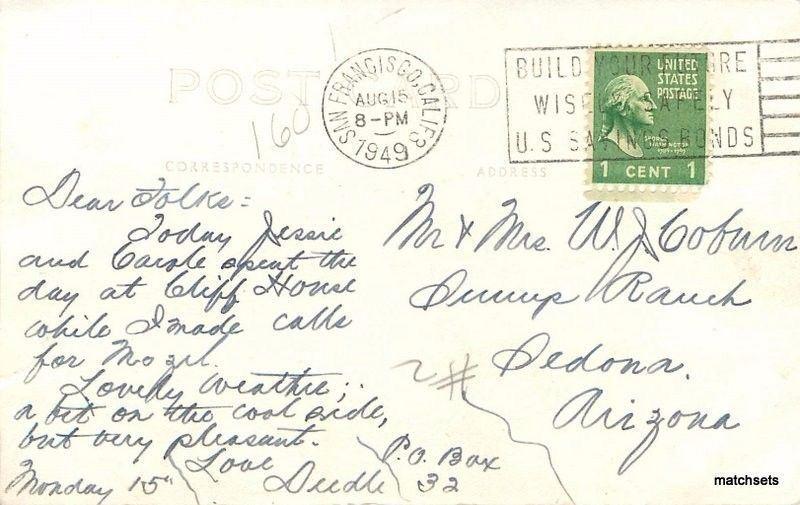 POST CARD
SAN FRANCISCO, CALIF. 8
AUG 15
8-PM
1949
BUILD YOUR FUTURE
WISELY SAFELY
U.S SAVINGS BONDS
UNITED
STATES
POSTAGE
GEORGE
WASHINGTON
1789-1797
1 CENT 1
160
CORRESPONDENCE
ADDRESS
Dear Folks =
Today Jessie
and Carole spent the
day at Cliff House
while I made calls
for
Lovely weather;
a bit on the cool side,
but very pleasant.
Love
Monday 15" Deedle
Mr & Mrs. W. J. Coburn
Ranch
Sedona.
Arizona
P.O. Box
32
matchsets